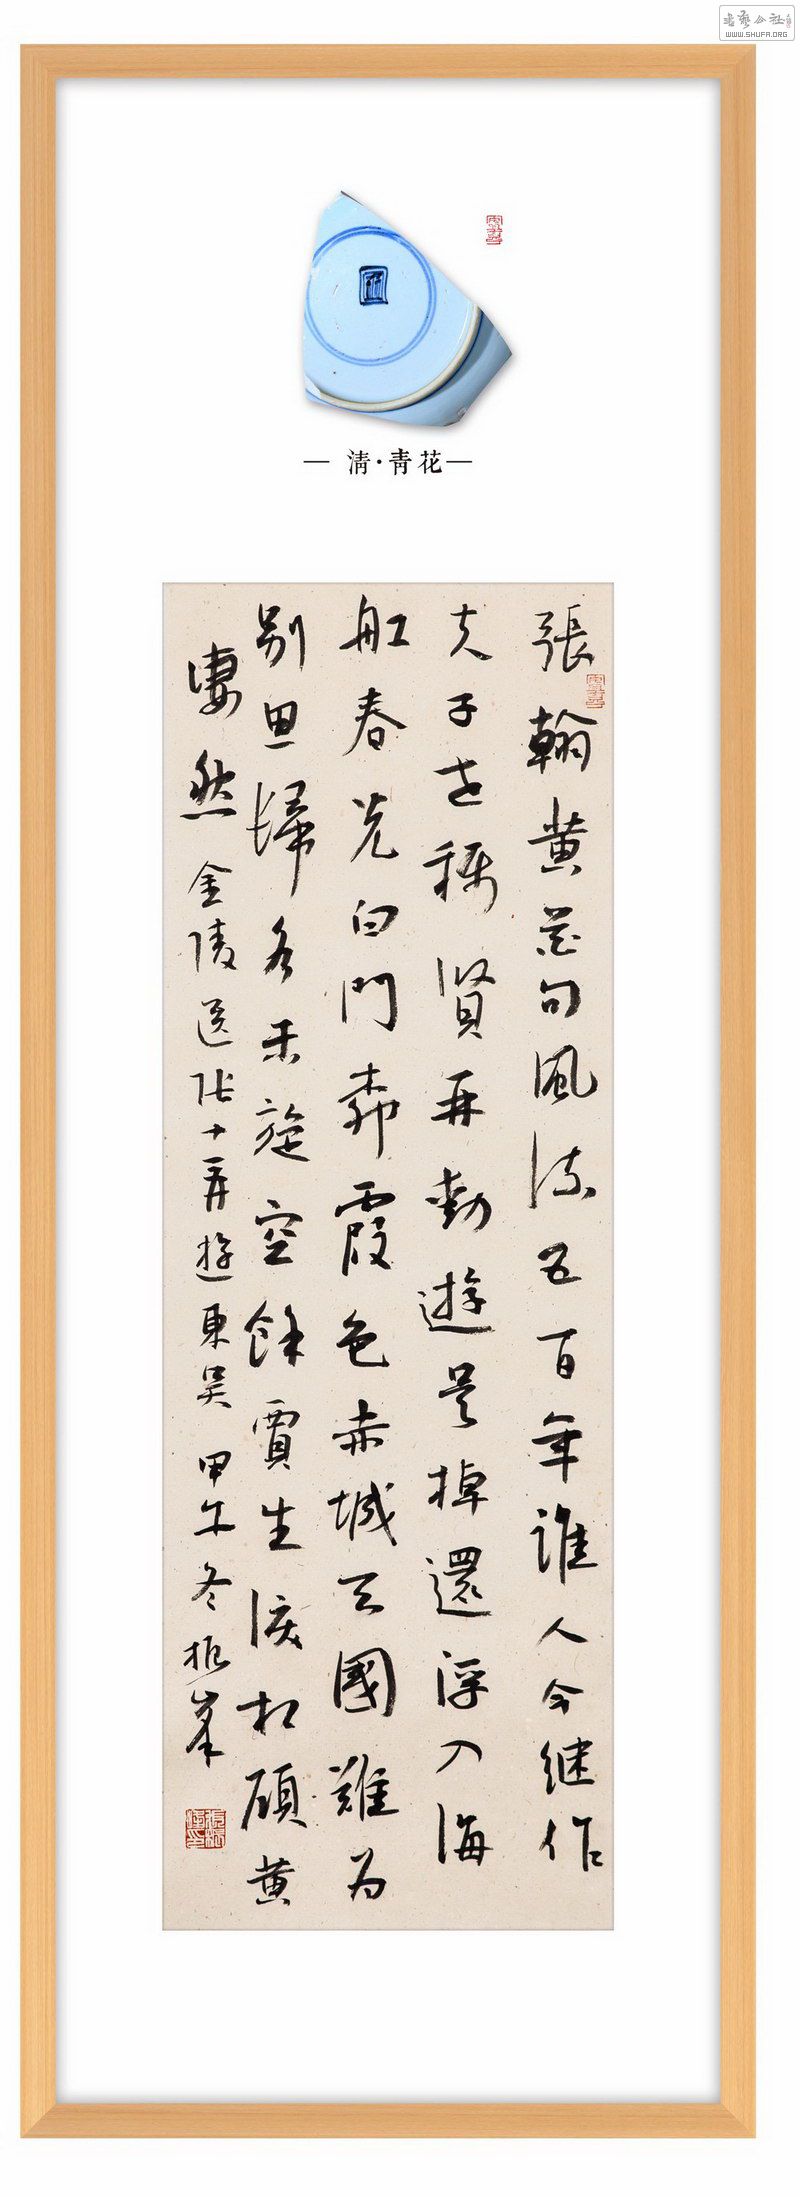 書藝公社
WWW.SHUFA.ORG
— 清·青花—
張翰黄花句風流五百年誰人今继作
夫子世稱賢再動遊吳棹還浮入海
舡春光白門柳霞色赤城天國難为
别思歸各未旋空餘賈生淚相顧黄
凄然 金陵送张十再遊東吴 甲午冬振峯